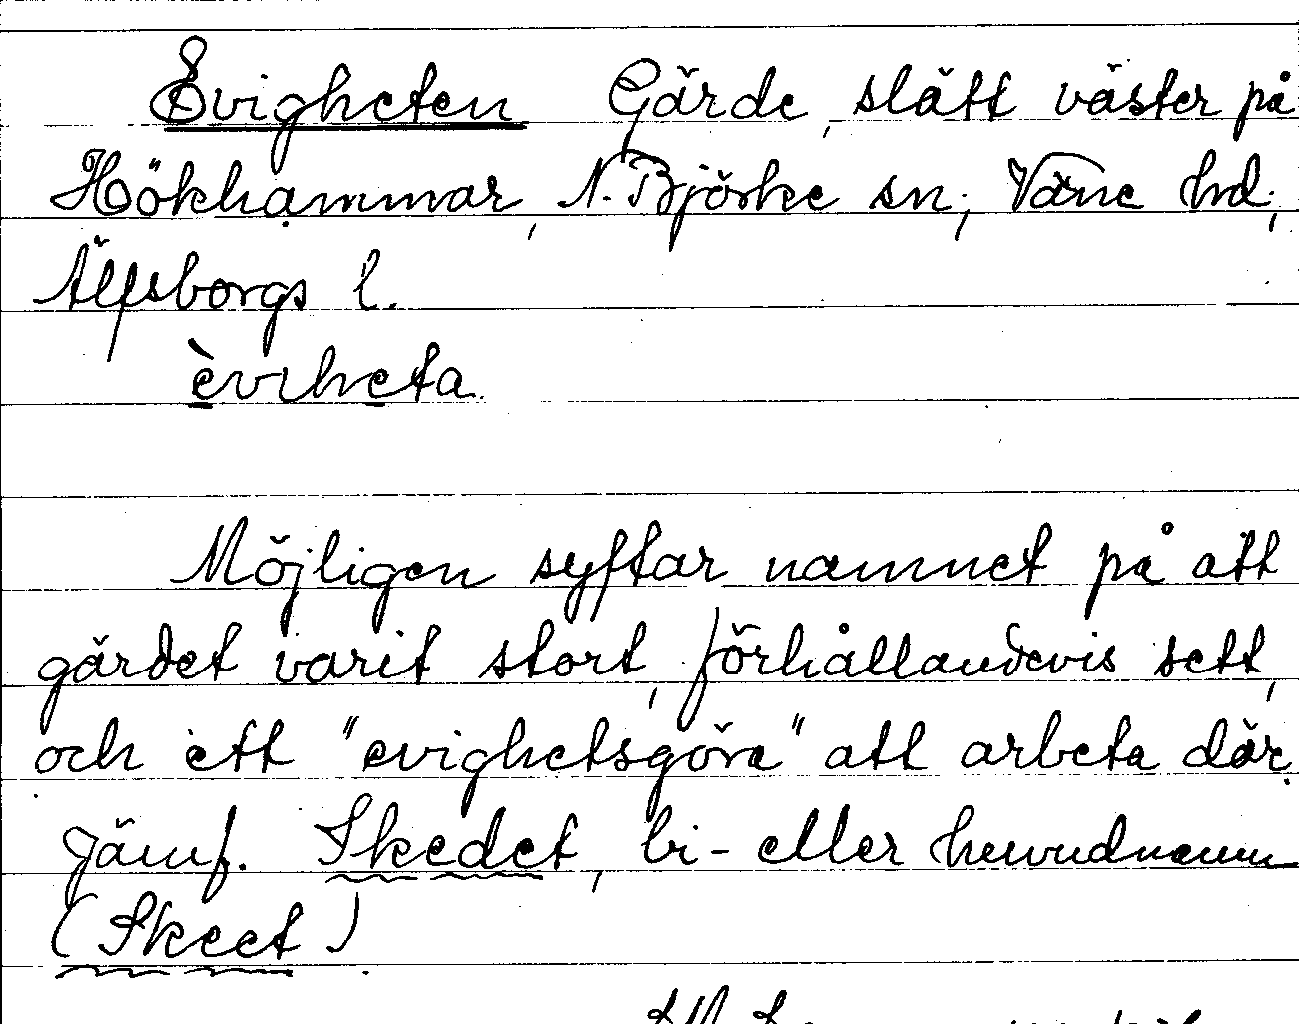 Evigheten Gärde, slätt väster på
Hökhammar, N. Björke sn, Väne hd,
Älfsborgs l.
èviheta.
Möjligen syftar namnet på att
gärdet varit stort, förhållandevis sett,
och ett "evighetsgöra" att arbeta där.
Jämf. Skedet, bi- eller huvudnamn
(Skeet).